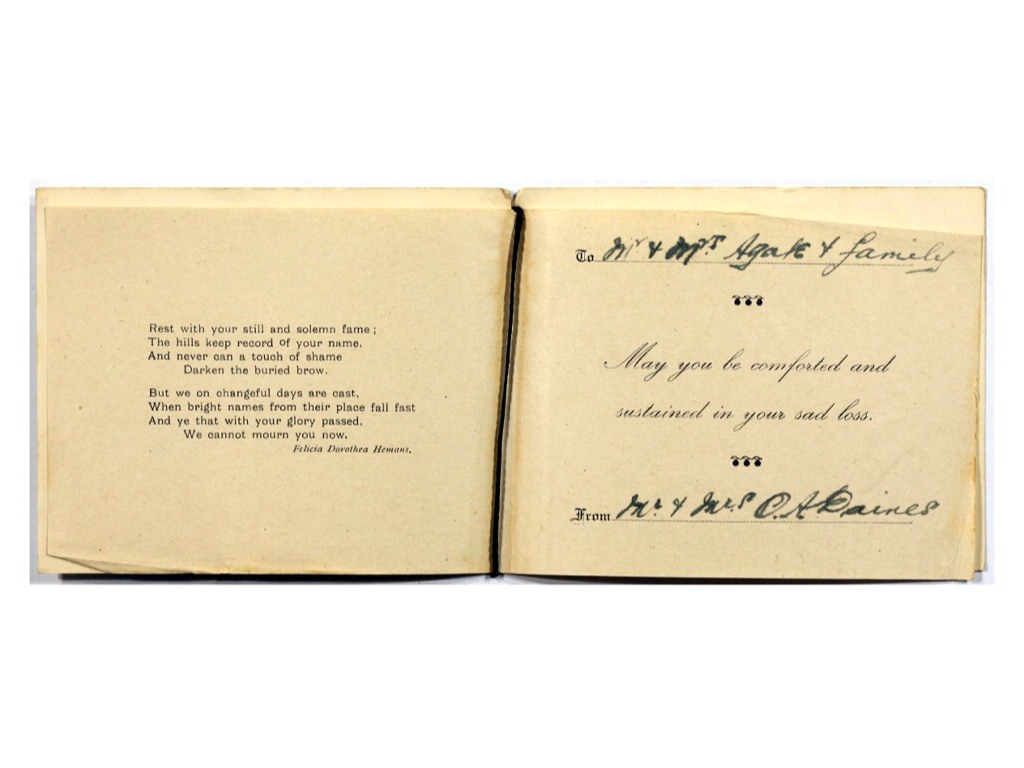 Rest with your still and solemn fame;
The hills keep record of your name,
And never can a touch of shame
Darken the buried brow.
But we on changeful days are cast,
When bright names from their place fall fast
And ye that with your glory passed,
We cannot mourn you now.
Felicia Dorothea Hemans.
To Mr & Mrs. Agate & family
May you be comforted and
sustained in your sad loss.
From Mr. & Mrs C. A Daines